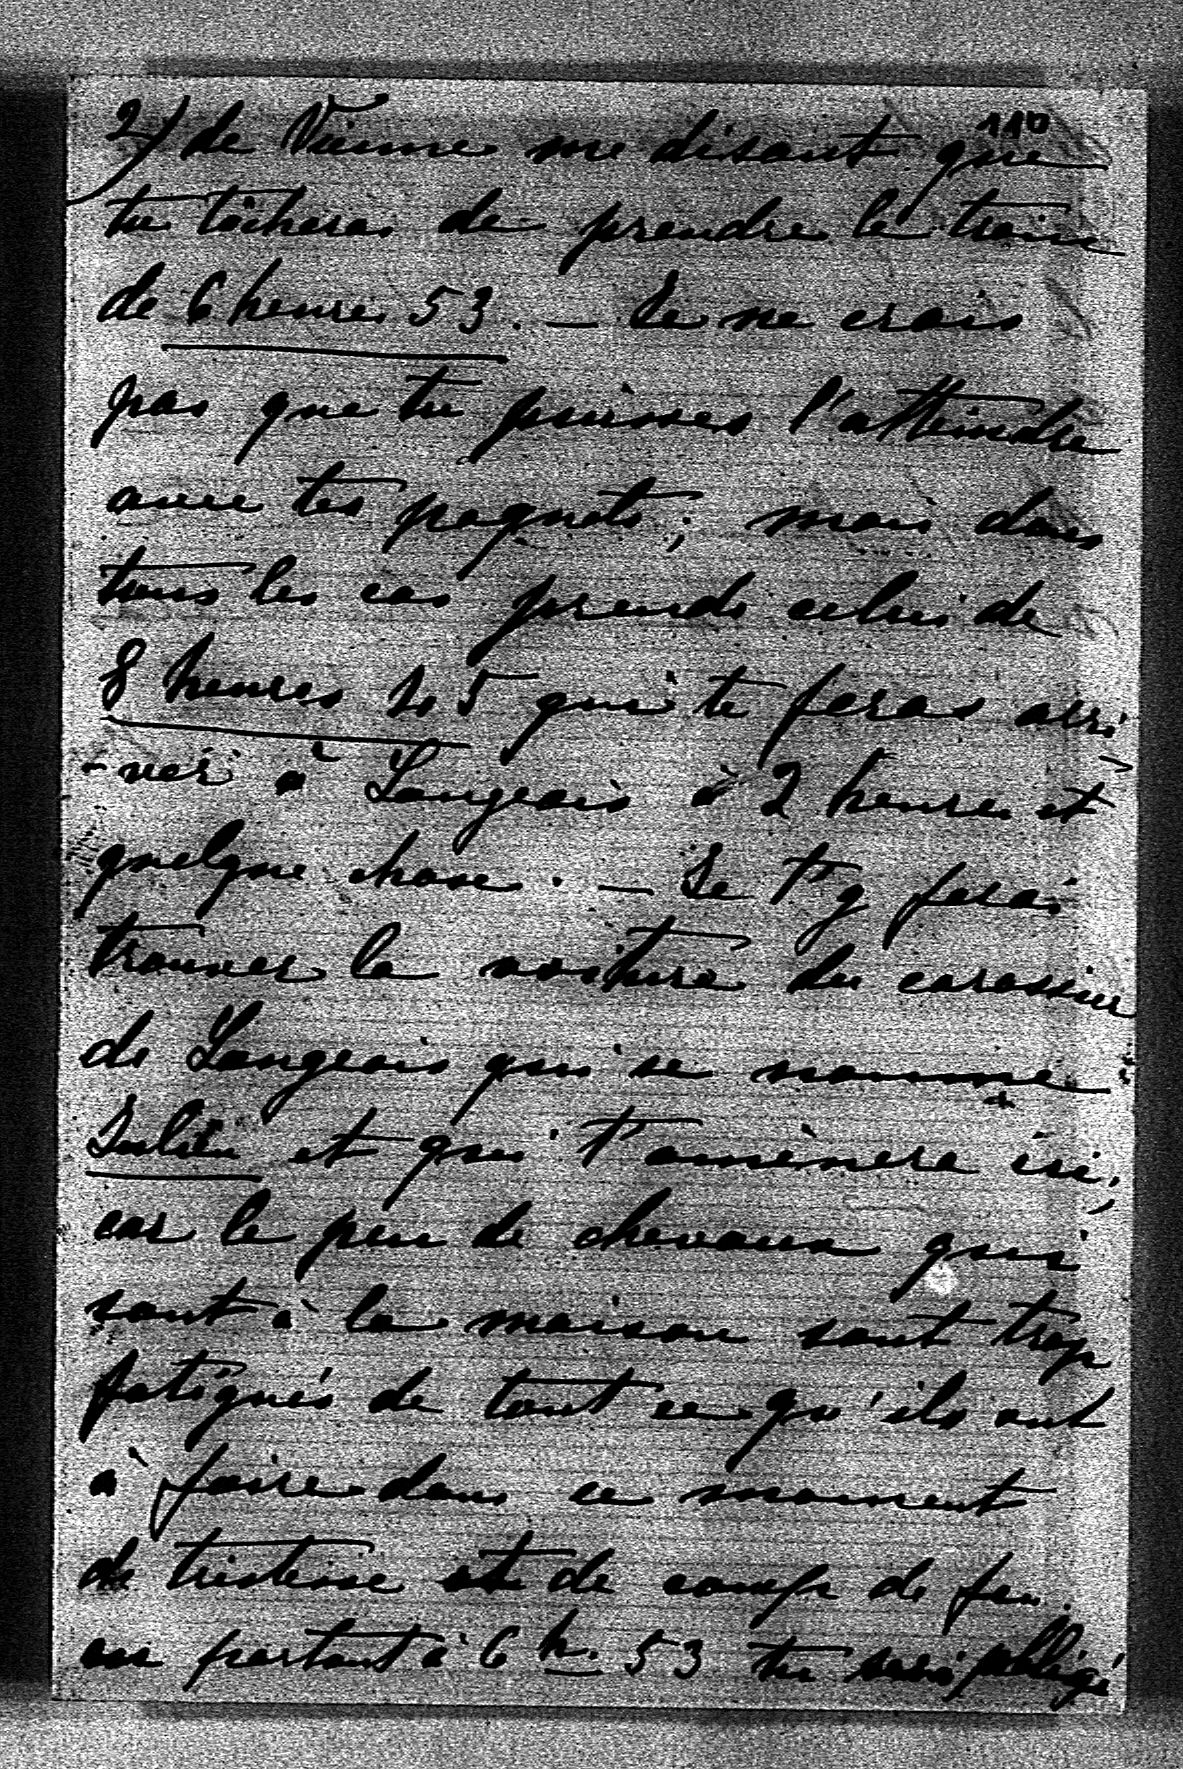 110
2) de Vienne me disant que
tu tâcheras de prendre le train
de 6 heures 53. — Je ne crois
pas que tu puisses l'atteindre
avec tes paquets ; mais dans
tous les cas prends celui de
8 heures 45 qui te feras arri
-ver à Langeais à 2 heures et
quelque chose. — Je t'y ferai
trouver la voiture du carossier
de Langeais qui se nomme
Julien et qui t'amènera ici ;
car le peu de chevaux qui
sont à la maison sont trop
fatigués de tout ce qu'ils ont
à faire dans ce moment
de tristesse et de coups de feu.
en partant à 6 h. 53 tu serais obligé